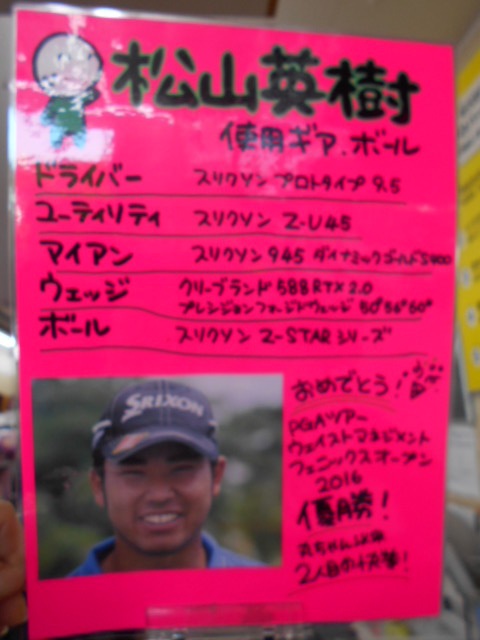 松山英樹
使用ギア、ボール
ドライバー スリクソン プロトタイプ 9.5
ユーティリティ スリクソン Z-U45
アイアン スリクソン 945 ダイナミックゴールドS400
ウェッジ クリーブランド 588 RTX 2.0
プレシジョンフォージドウェッジ 50°56°60°
ボール スリクソン Z-STAR シリーズ
SRIXON
おめでとう!
PGAツアー
ウェイストマネジメント
フェニックスオープン
2016
優勝!
丸ちゃん以来
2人目の快挙!